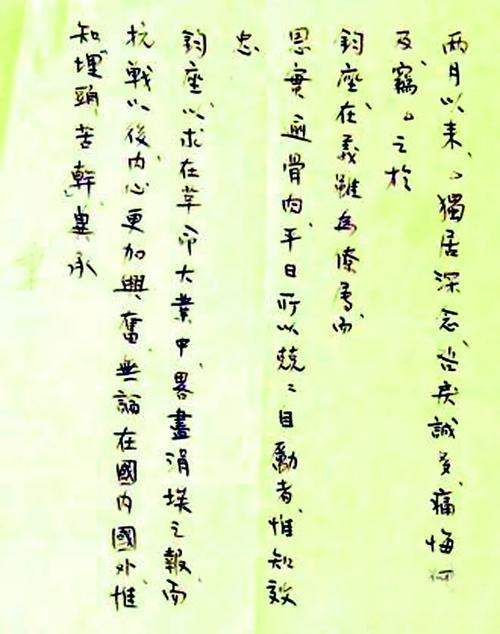 兩月以来、厶獨居深念、咎戾誠多、痛悔何
及、竊厶之於
鈞座、在義雖為僚屬、而
恩實逾骨肉、平日所以兢〻自勵者、惟知效
忠
鈞座、以求在革命大業中、畧盡涓埃之報、而
抗戰以後、内心更加興奮、無論在國内國外、惟
知埋頭苦幹、冀承